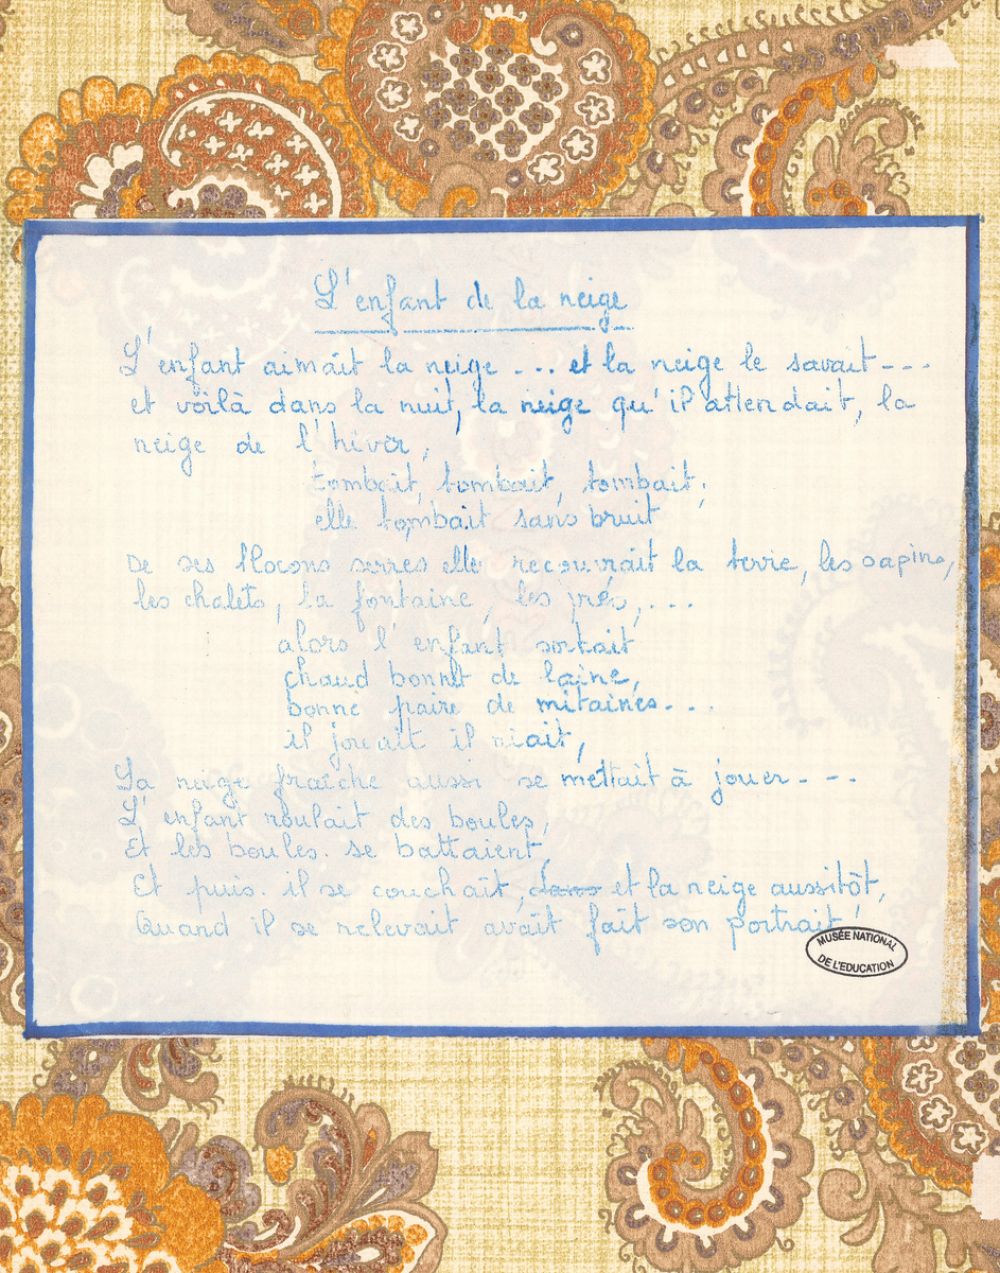 L'enfant de la neige
L'enfant aimait la neige ... et la neige le savait ---
et voilà dans la nuit, la neige qu'il attendait, la
neige de l'hiver,
tombait, tombait, tombait,
elle tombait sans bruit
De ses flocons serres elle recouvrait la terre, les sapins,
les chalets, la fontaine, les prés, ...
alors l'enfant sortait
chaud bonnet de laine,
bonne paire de mitaines ...
il jouait il riait,
La neige fraîche aussi se mettait à jouer ---
L'enfant roulait des boules,
Et les boules. se battaient,
Et puis. il se couchait, dans et la neige aussitôt,
Quand il se relevait avait fait son portrait!
MUSÉE NATIONAL
DE L'EDUCATION